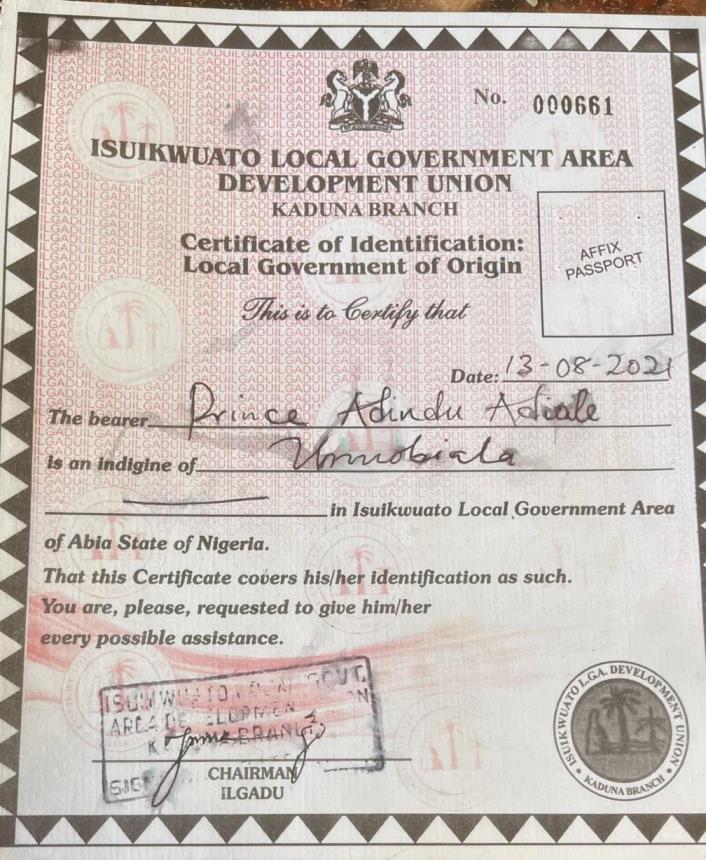 No. 000661
ISUIKWUATO LOCAL GOVERNMENT AREA
DEVELOPMENT UNION
KADUNA BRANCH
Certificate of Identification:
Local Government of Origin
AFFIX
PASSPORT
This is to Certify that
Date: 13-08-2021
The bearer Prince Adindu Adiale
is an indigine of Umuobiala
in Isuikwuato Local Government Area
of Abia State of Nigeria.
That this Certificate covers his/her identification as such.
You are, please, requested to give him/her
every possible assistance.
ISUIKWUATO LOCAL GOVT.
AREA DEVELOPMENT UNION
BRANCH
CHAIRMAN
ILGADU
ISUIKWUATO L.G.A. DEVELOPMENT UNION
KADUNA BRANCH